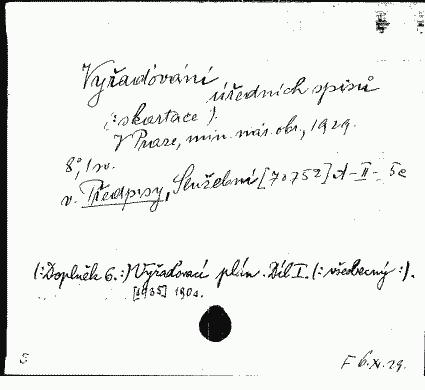 Vyřaďování
úředních spisů
(:skartace).
V Praze, min. nár. obr., 1929.
8°, 1 sv.
v. Předpisy, Služební [70752] A-II-5e
(:Doplněk 6.:) Vyřaďovací plán. Díl I. (:všeobecný:).
[1935] 190s.
F 6.XI.29.